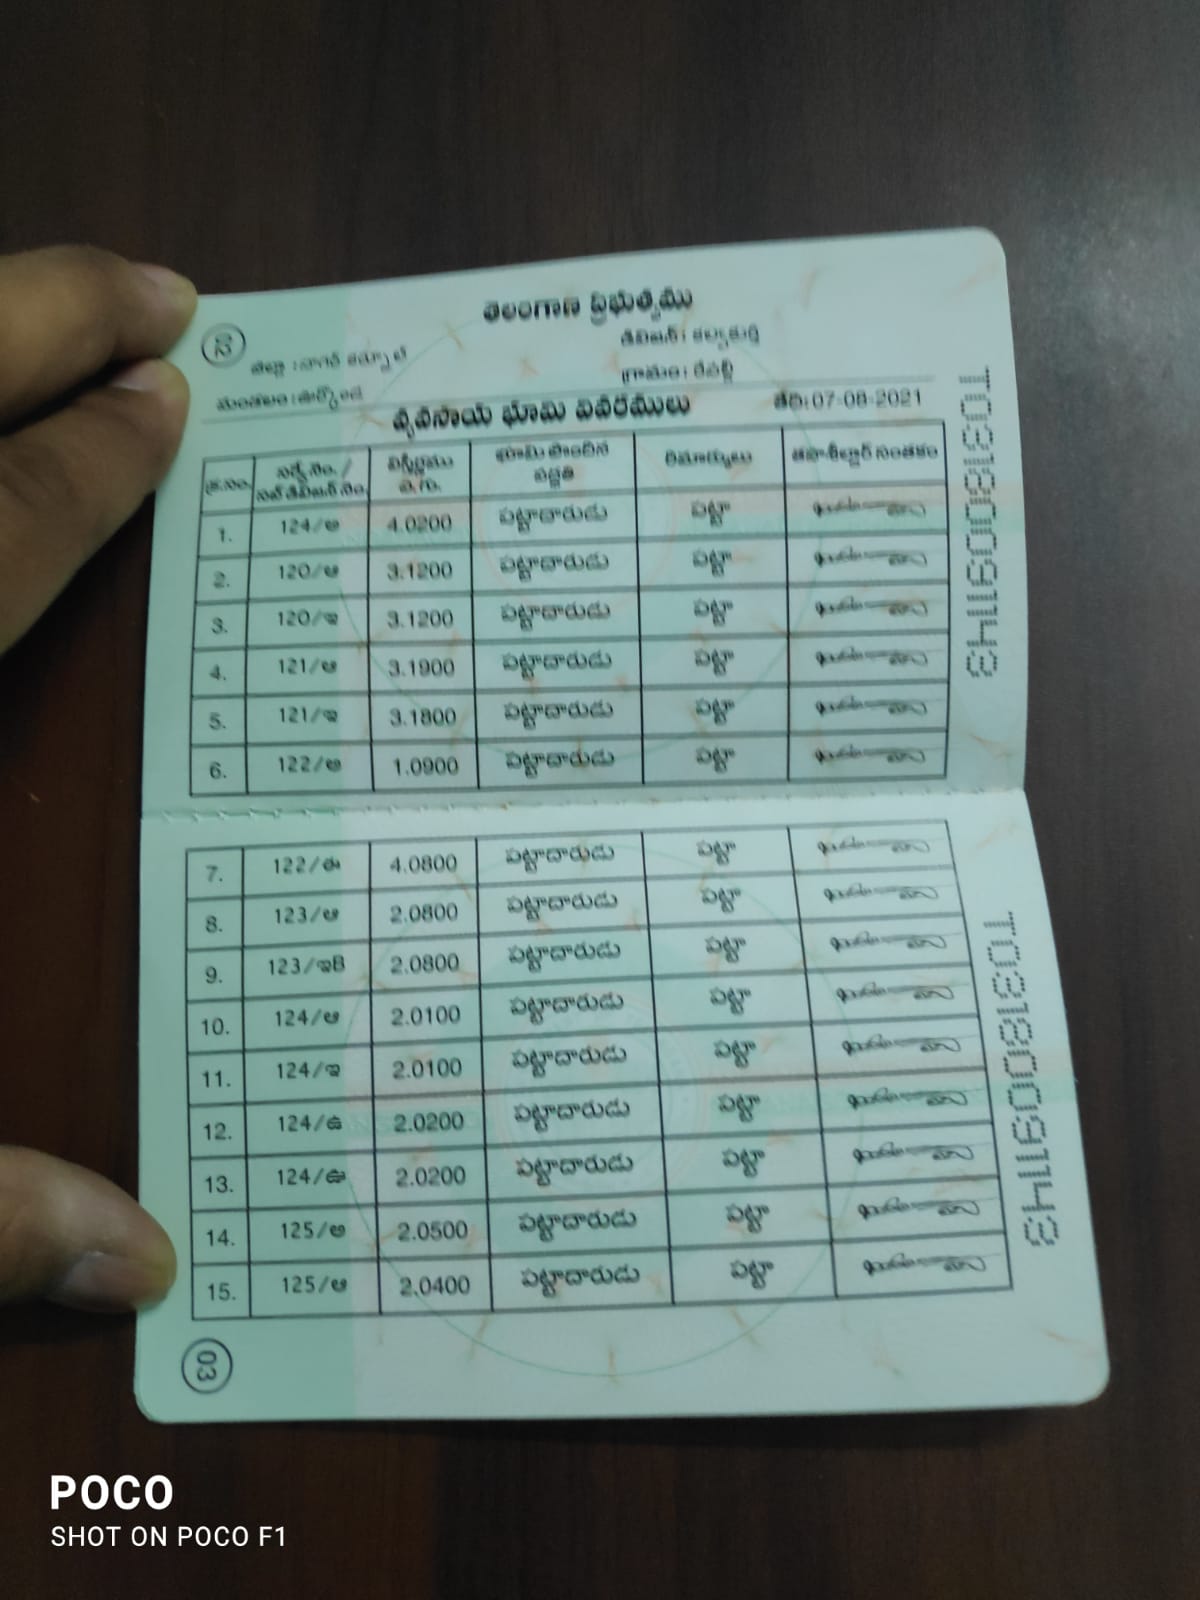 తెలంగాణ ప్రభుత్వము
02
జిల్లా : నాగర్ కర్నూల్
డివిజన్ : కల్వకుర్తి
మండలం : ఊర్కొండ
గ్రామం : రేవల్లి
వ్యవసాయ భూమి వివరములు
తేది:07-08-2021
క్ర.సం. సర్వే నెం. / సబ్ డివిజన్ నెం. విస్తీర్ణము ఎ.గు. భూమి పొందిన పద్ధతి రిమార్కులు తహశీల్దార్ సంతకం
1. 124/అ 4.0200 పట్టాదారుడు పట్టా
2. 120/ఆ 3.1200 పట్టాదారుడు పట్టా
3. 120/ఇ 3.1200 పట్టాదారుడు పట్టా
4. 121/ఆ 3.1900 పట్టాదారుడు పట్టా
5. 121/ఇ 3.1800 పట్టాదారుడు పట్టా
6. 122/అ 1.0900 పట్టాదారుడు పట్టా
7. 122/ఈ 4.0800 పట్టాదారుడు పట్టా
8. 123/ఆ 2.0800 పట్టాదారుడు పట్టా
9. 123/ఇB 2.0800 పట్టాదారుడు పట్టా
10. 124/ఆ 2.0100 పట్టాదారుడు పట్టా
11. 124/ఇ 2.0100 పట్టాదారుడు పట్టా
12. 124/ఉ 2.0200 పట్టాదారుడు పట్టా
13. 124/ఊ 2.0200 పట్టాదారుడు పట్టా
14. 125/అ 2.0500 పట్టాదారుడు పట్టా
15. 125/ఆ 2.0400 పట్టాదారుడు పట్టా
03
POCO
SHOT ON POCO F1